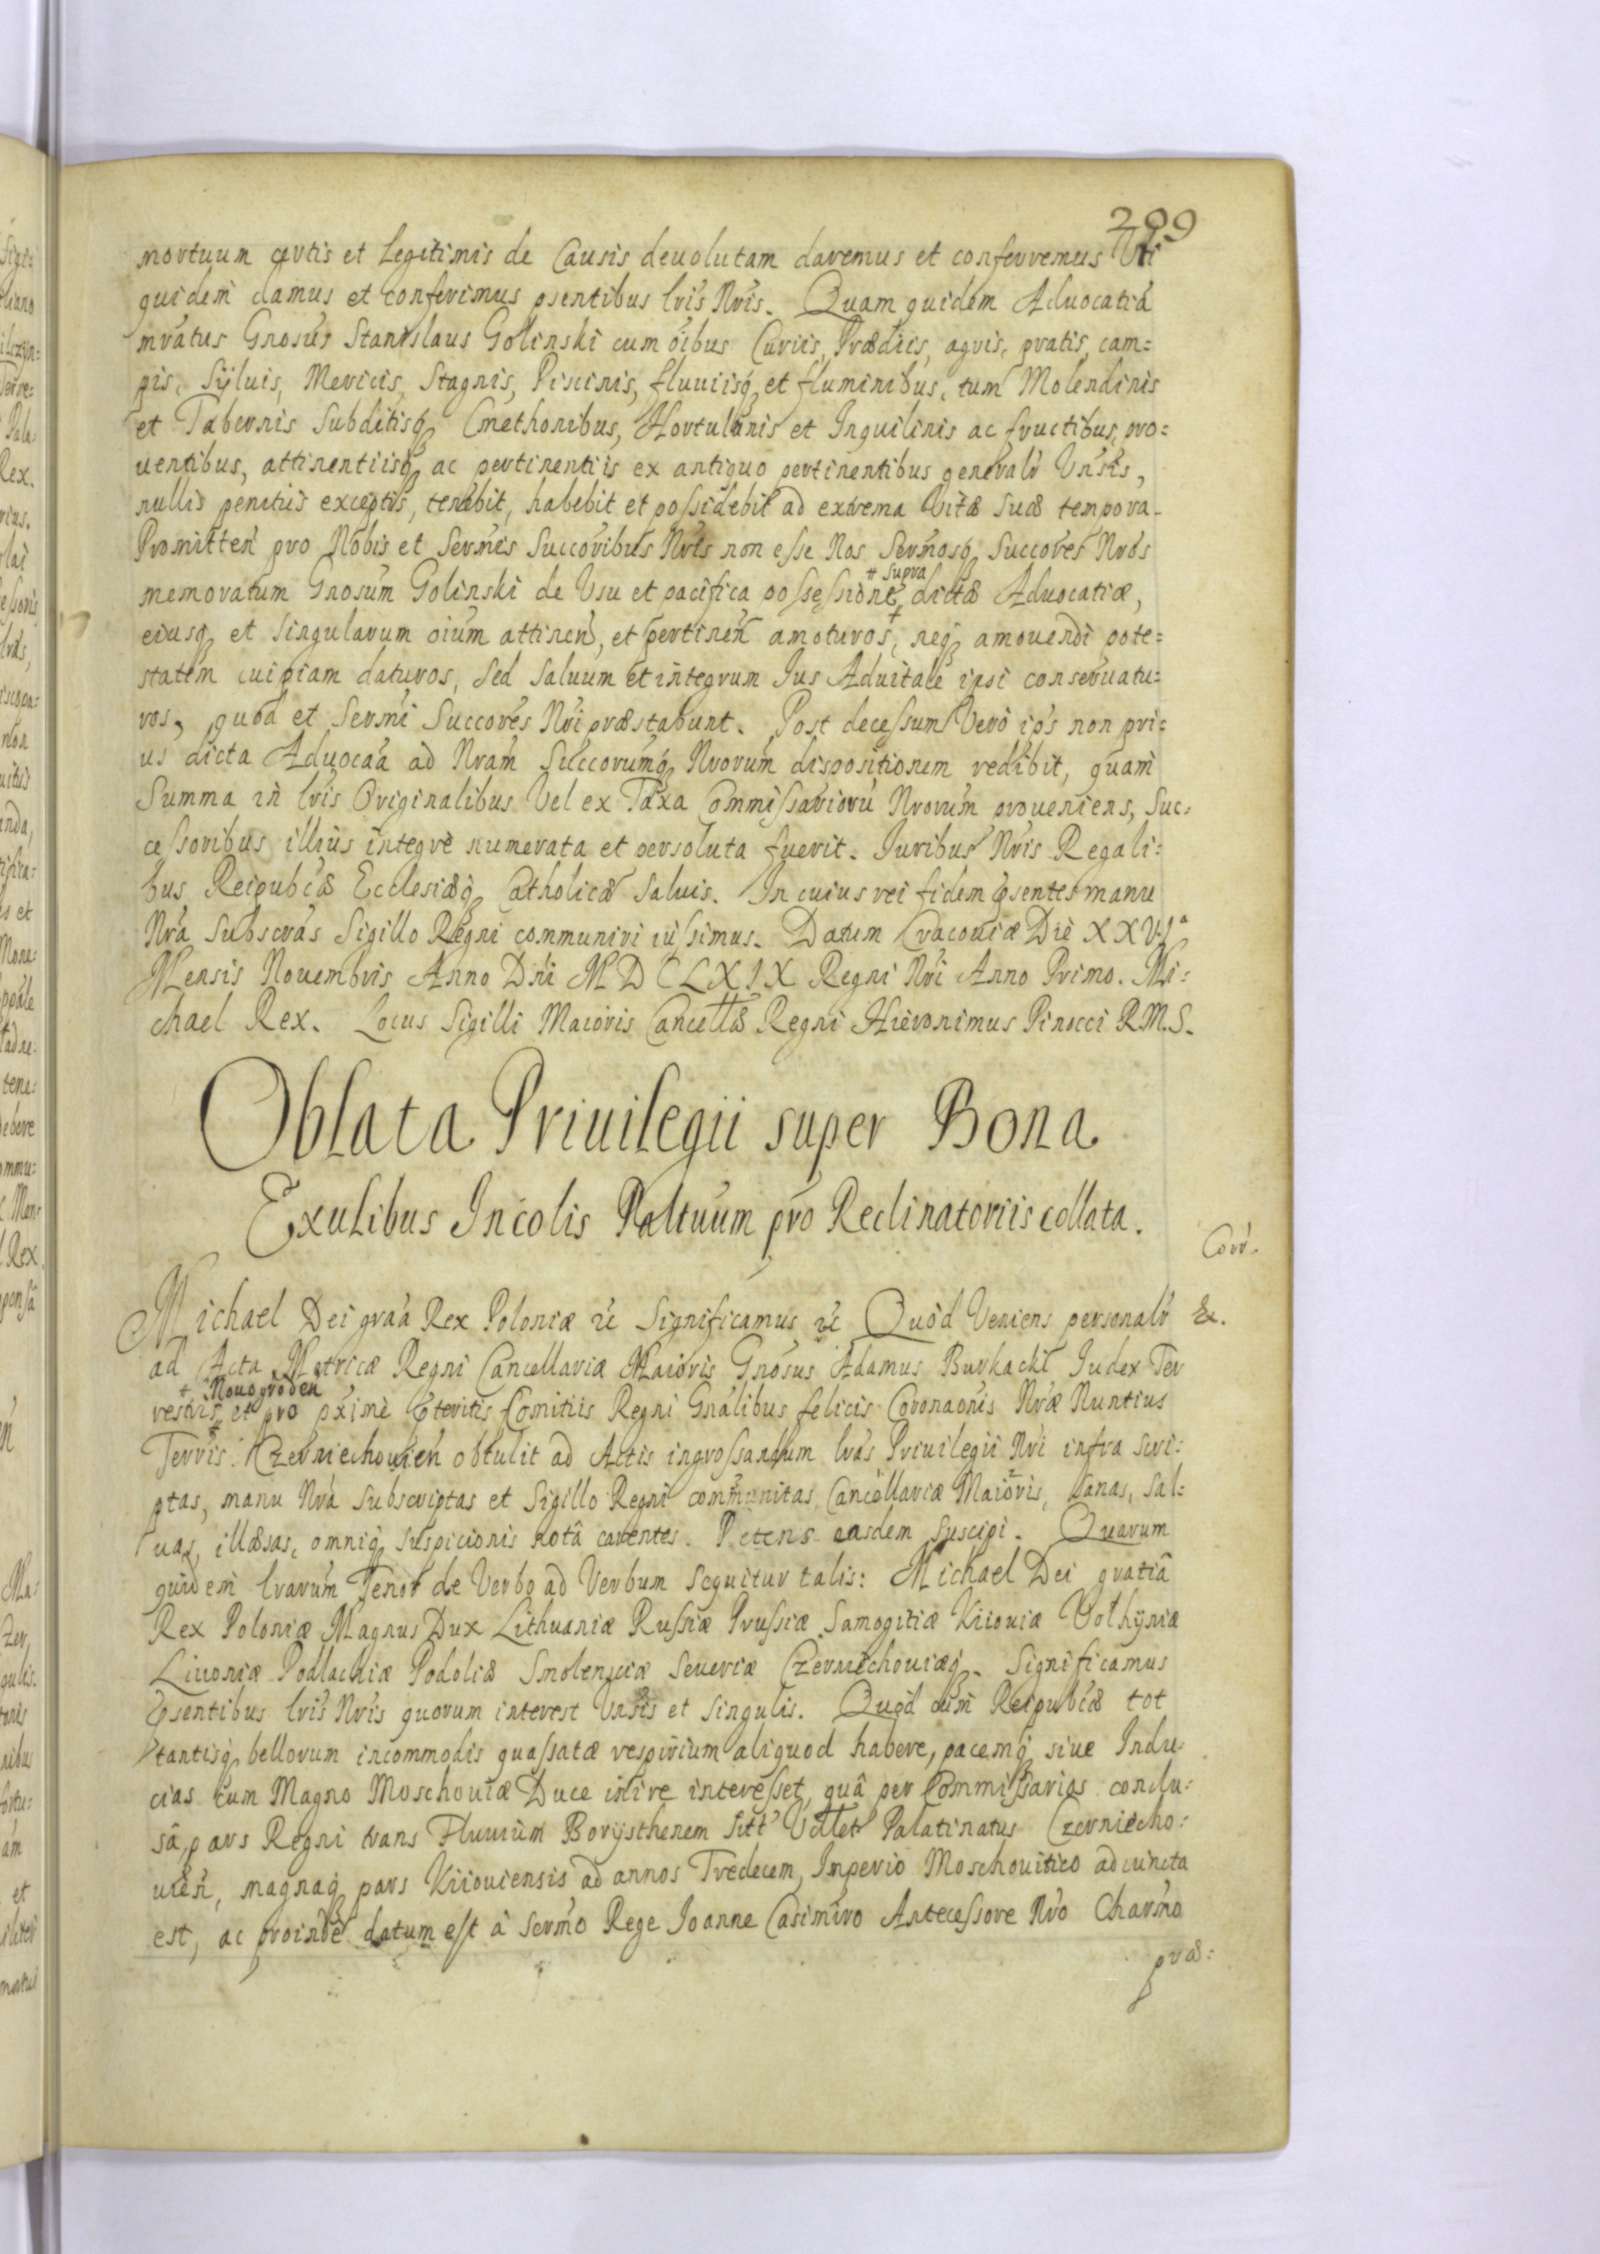 299
mortuum certis et Legitimis de Causis deuolutam daremus et conferremus Uti
quidem damus et conferimus psentibus lris Nris. Quam quidem Aduocatiã
mratus Gnosus Stanislaus Golinski cum oibus Curiis, Prædiis, agris, pratis, cam=
pis, Syluis, Mericis, Stagnis, Piscinis, fluuiisq; et fluminibus, tum Molendinis
et Tabernis Subditisq; Cmethonibus, Hortulanis et Inquilinis ac fructibus, pro=
uentibus, attinentiisq; ac pertinentiis ex antiquo pertinentibus generalr Unsis,
nullis penitus exceptis, tenebit, habebit et possidebit ad extrema Vitæ suæ tempora.
Promitten pro Nobis et Sermis Succoribus Nris non esse Nos Sermosq; Succores Nros
memoratum Gnosum Golinski de Usu et pacifica possessione + supra dictæ Aduocatiæ,
eiusq; et singularum oium attinen, et pertinen amoturos, neq; amouendi pote=
statem cuipiam daturos, sed saluum et integrum Ius Aduitale ipsi conseruatu=
ros, quod et Sermi Succores Nri præstabunt. Post decessum Vero ips non pri=
us dicta Aduocaa ad Nram Succorumq; Nrorum dispositionem redibit, quam
Summa in lris Originalibus Vel ex Taxa Commissariorũ Nrorum proueniens, Suc=
cessoribus illius integrè numerata et persoluta fuerit. Iuribus Nris Regali=
bus Reipubcæ Ecclesiæq; Catholicæ saluis. In cuius rei fidem psentes manu
Nra Subscras Sigillo Regni communiri iussimus. Datum Cracouiæ Die XXVIa
Mensis Nouembris Anno Dni MDCLXIX Regni Nri Anno Primo. Mi=
chael Rex. Locus Sigilli Maioris Cancellæ Regni Hieronimus Pinocci R.M.S.
Oblata Priuilegii super Bona
Exulibus Incolis Paltuum pro Reclinatoriis collata.
Corr.
Michael Dei graa Rex Poloniæ &c Significamus &c Quòd Veniens personalr &.
ad Acta Metricæ Regni Cancellariæ Maioris Gnosus Adamus Burkacki Iudex Ter
restris + Nouogroden et pro pxime pteritis Comitiis Regni Gnalibus felicis Coronaonis Nræ Nuntius
Terris Czerniechouien obtulit ad Actis ingrossandum lras Priuilegii Nri infra scri=
ptas, manu Nrà subscriptas et Sigillo Regni communitas Cancellariæ Maioris, sanas, sal=
uas, illæsas, omniq; suspicionis notâ carentes. Petens easdem suscipi. Quarum
quidem lrarum Tenor de Verbo ad Verbum sequitur talis: Michael Dei gratiâ
Rex Poloniæ Magnus Dux Lithuaniæ Russiæ Prussiæ Samogitiæ Kiiouiæ Volhyniæ
Liuoniæ Podlachiæ Podoliæ Smolensciæ Seueriæ Czerniechouiæq;. Significamus
psentibus lris Nris quorum interest Unsis et singulis. Quod cum Reipubcæ tot
tantisq; bellorum incommodis quassatæ respirium aliquod habere, pacemq; siue Indu=
cias cum Magno Moschouiæ Duce inire interesset, quâ per Commissarios conclu=
sâ, pars Regni trans Fluuium Borysthenem Palatinatus Czerniecho=
uien, magnaq; pars Kiiouiensis ad annos Tredecem, Imperio Moschouitico adiuncta
est, ac proindè datum est à Sermo Rege Ioanne Casimiro Antecessore Nro Charmo
præ=